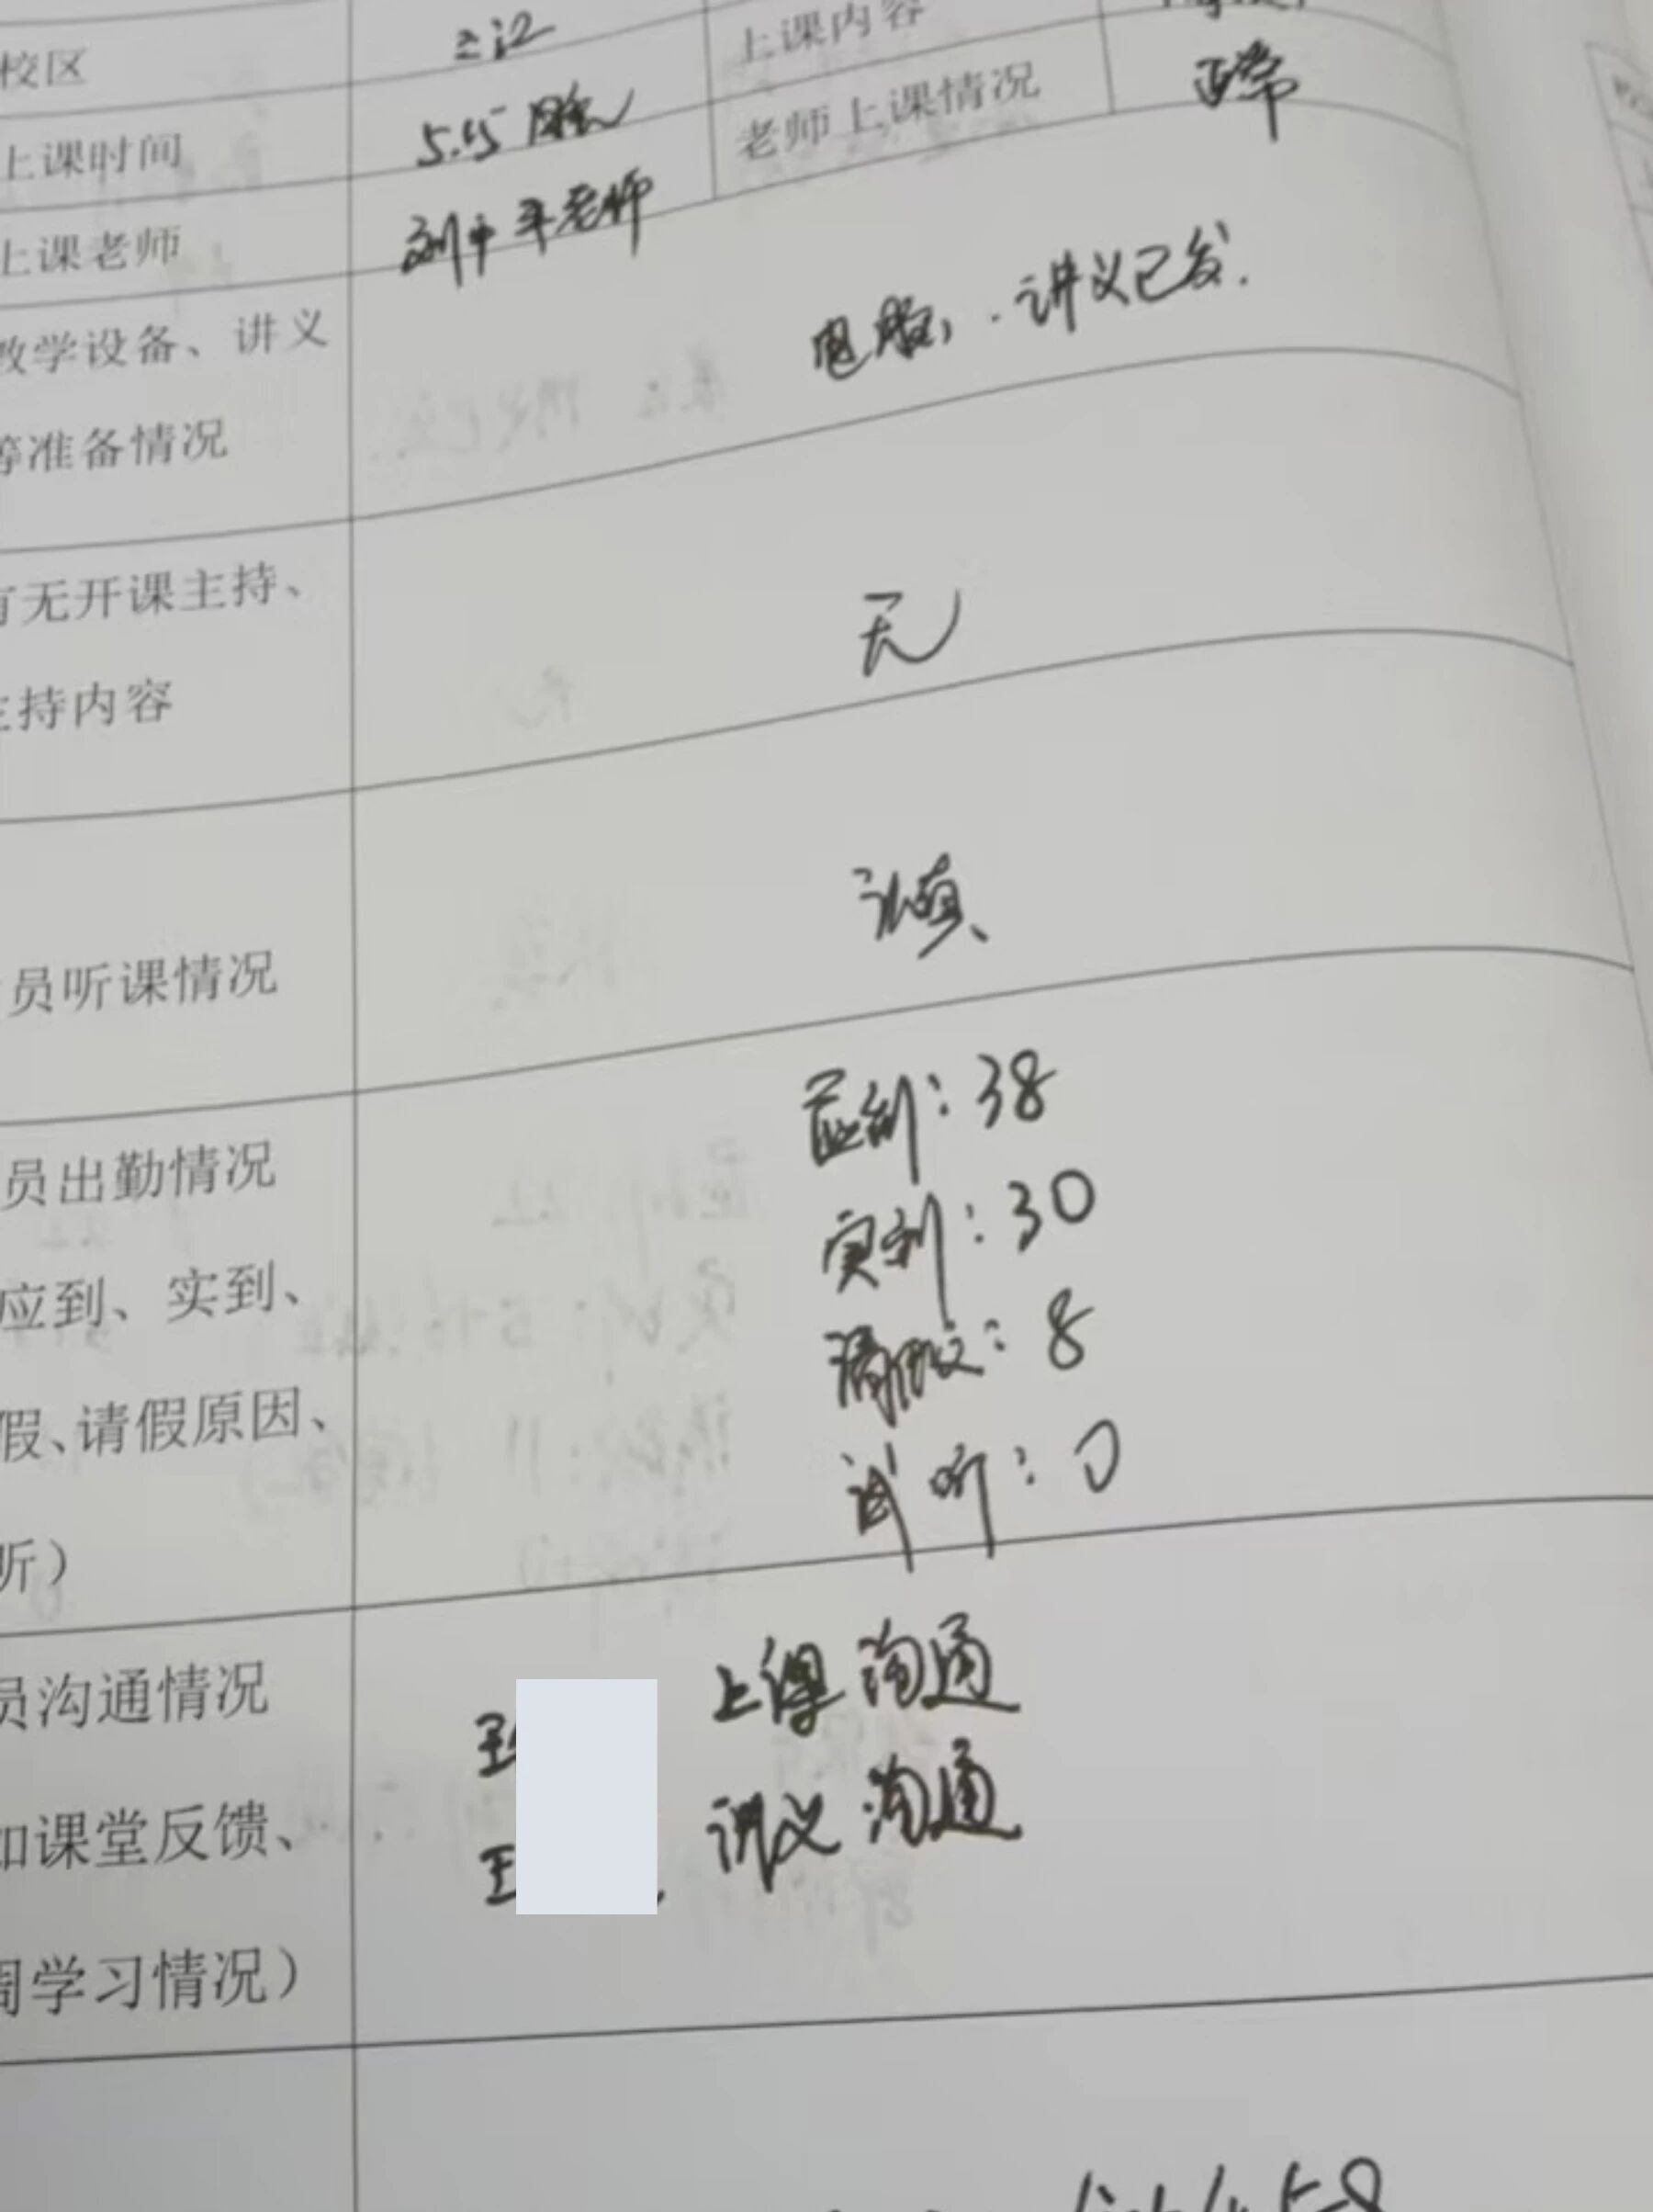 校区 上课内容
上课时间 5.15 晚 老师上课情况 正常
上课老师 老师
教学设备、讲义 电脑, 讲义已发.
等准备情况
有无开课主持、 无
主持内容
员听课情况 认真
员出勤情况 应到:38
应到、实到、 实到:30
假、请假原因、 请假:8
听) 试听:0
员沟通情况 王 上课沟通
如课堂反馈、 王 讲义沟通
周学习情况)